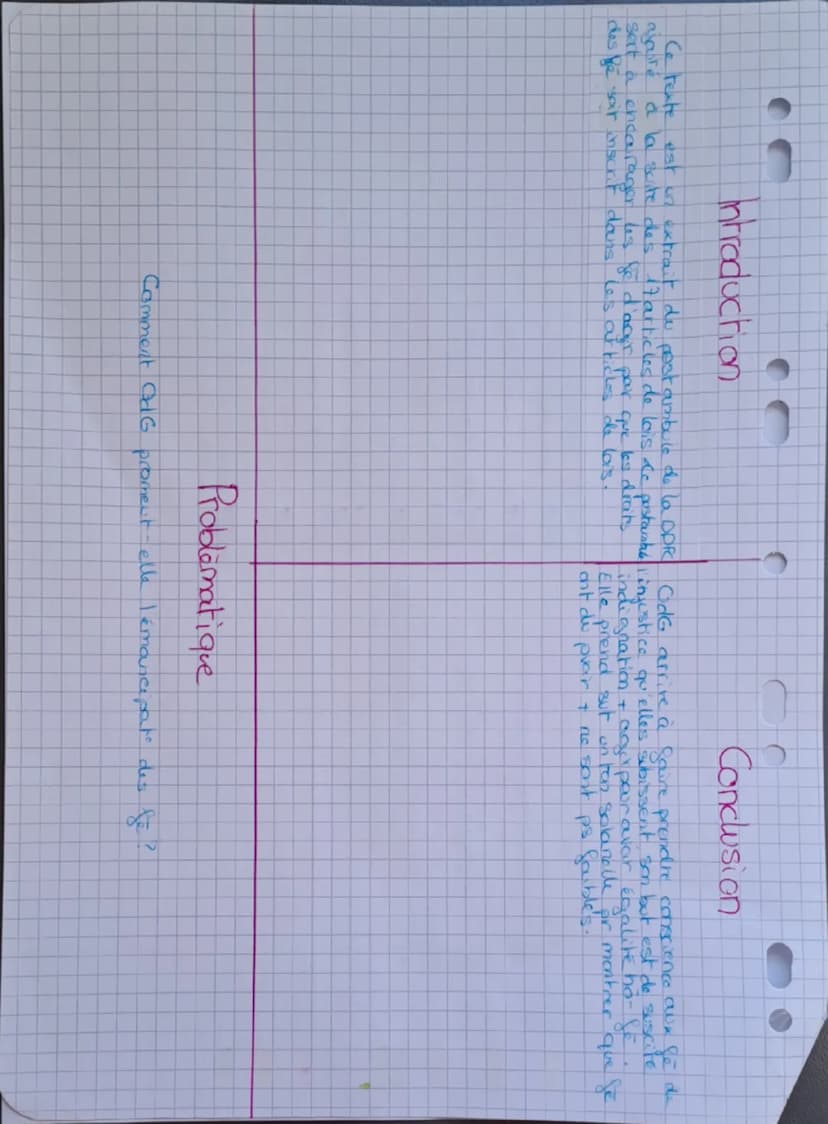 Introduction
Ce texte est un extrait du postambule de la DDFC
ajouté à la suite des 17 articles de lois. Ce postambule
sert à encourager les fe d'agir par que les droits
des fe soit inscrit dans les articles de lois.
Conclusion
OdG arrive à faire prendre conscience aux fe de
l'injustice qu'elles subissent, son but est de suscité
indignation + agir pour avoir égalité ho-fe.
Elle prend sut un ton solanelle pr montrer que fe
ont du pvoir + ne sont ps faibles.
Problématique
Comment OdG promeut-elle l'émancipat° des fe ?